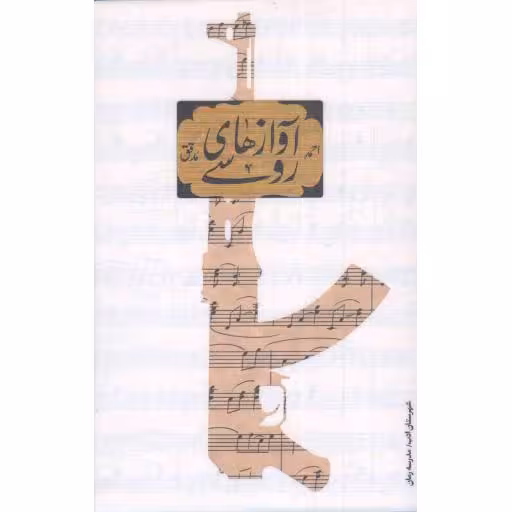 آوازهای
روسی
احمد مدقق
شهرستان ادب/ مدرسه رمان